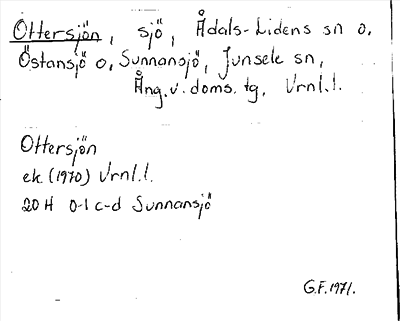 Ottersjön, sjö, Ådals-Lidens sn o.
Östansjö o, Sunnansjö, Junsele sn,
Ång.v.doms.tg, Vrnl.l.
Ottersjön
ek.(1970) Vrnl.l.
20H 0-1c-d Sunnansjö
G.F.1971.